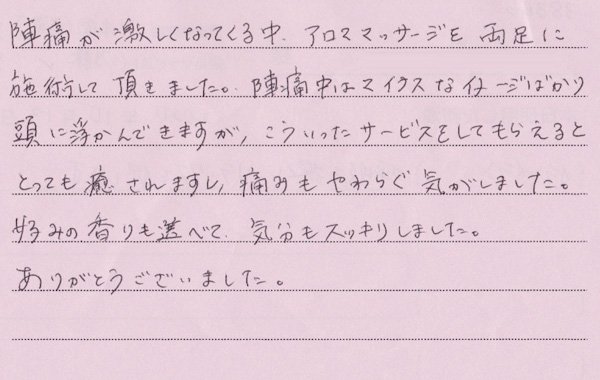 陣痛が激しくなってくる中、アロママッサージを両足に
施術して頂きました。陣痛中はマイナスなイメージばかり
頭に浮かんできますが、こういったサービスをしてもらえると
とっても癒されますし、痛みもやわらぐ気がしました。
好みの香りも選べて、気分もスッキリしました。
ありがとうございました。